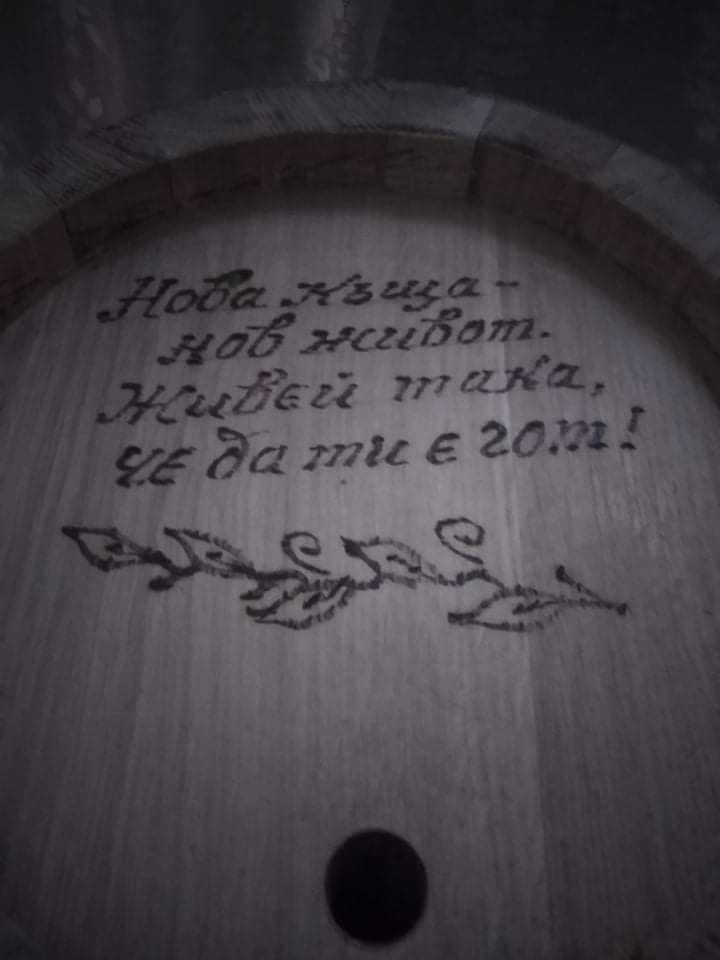 Нова къща -
нов живот.
Живей така,
че да ти е гот!